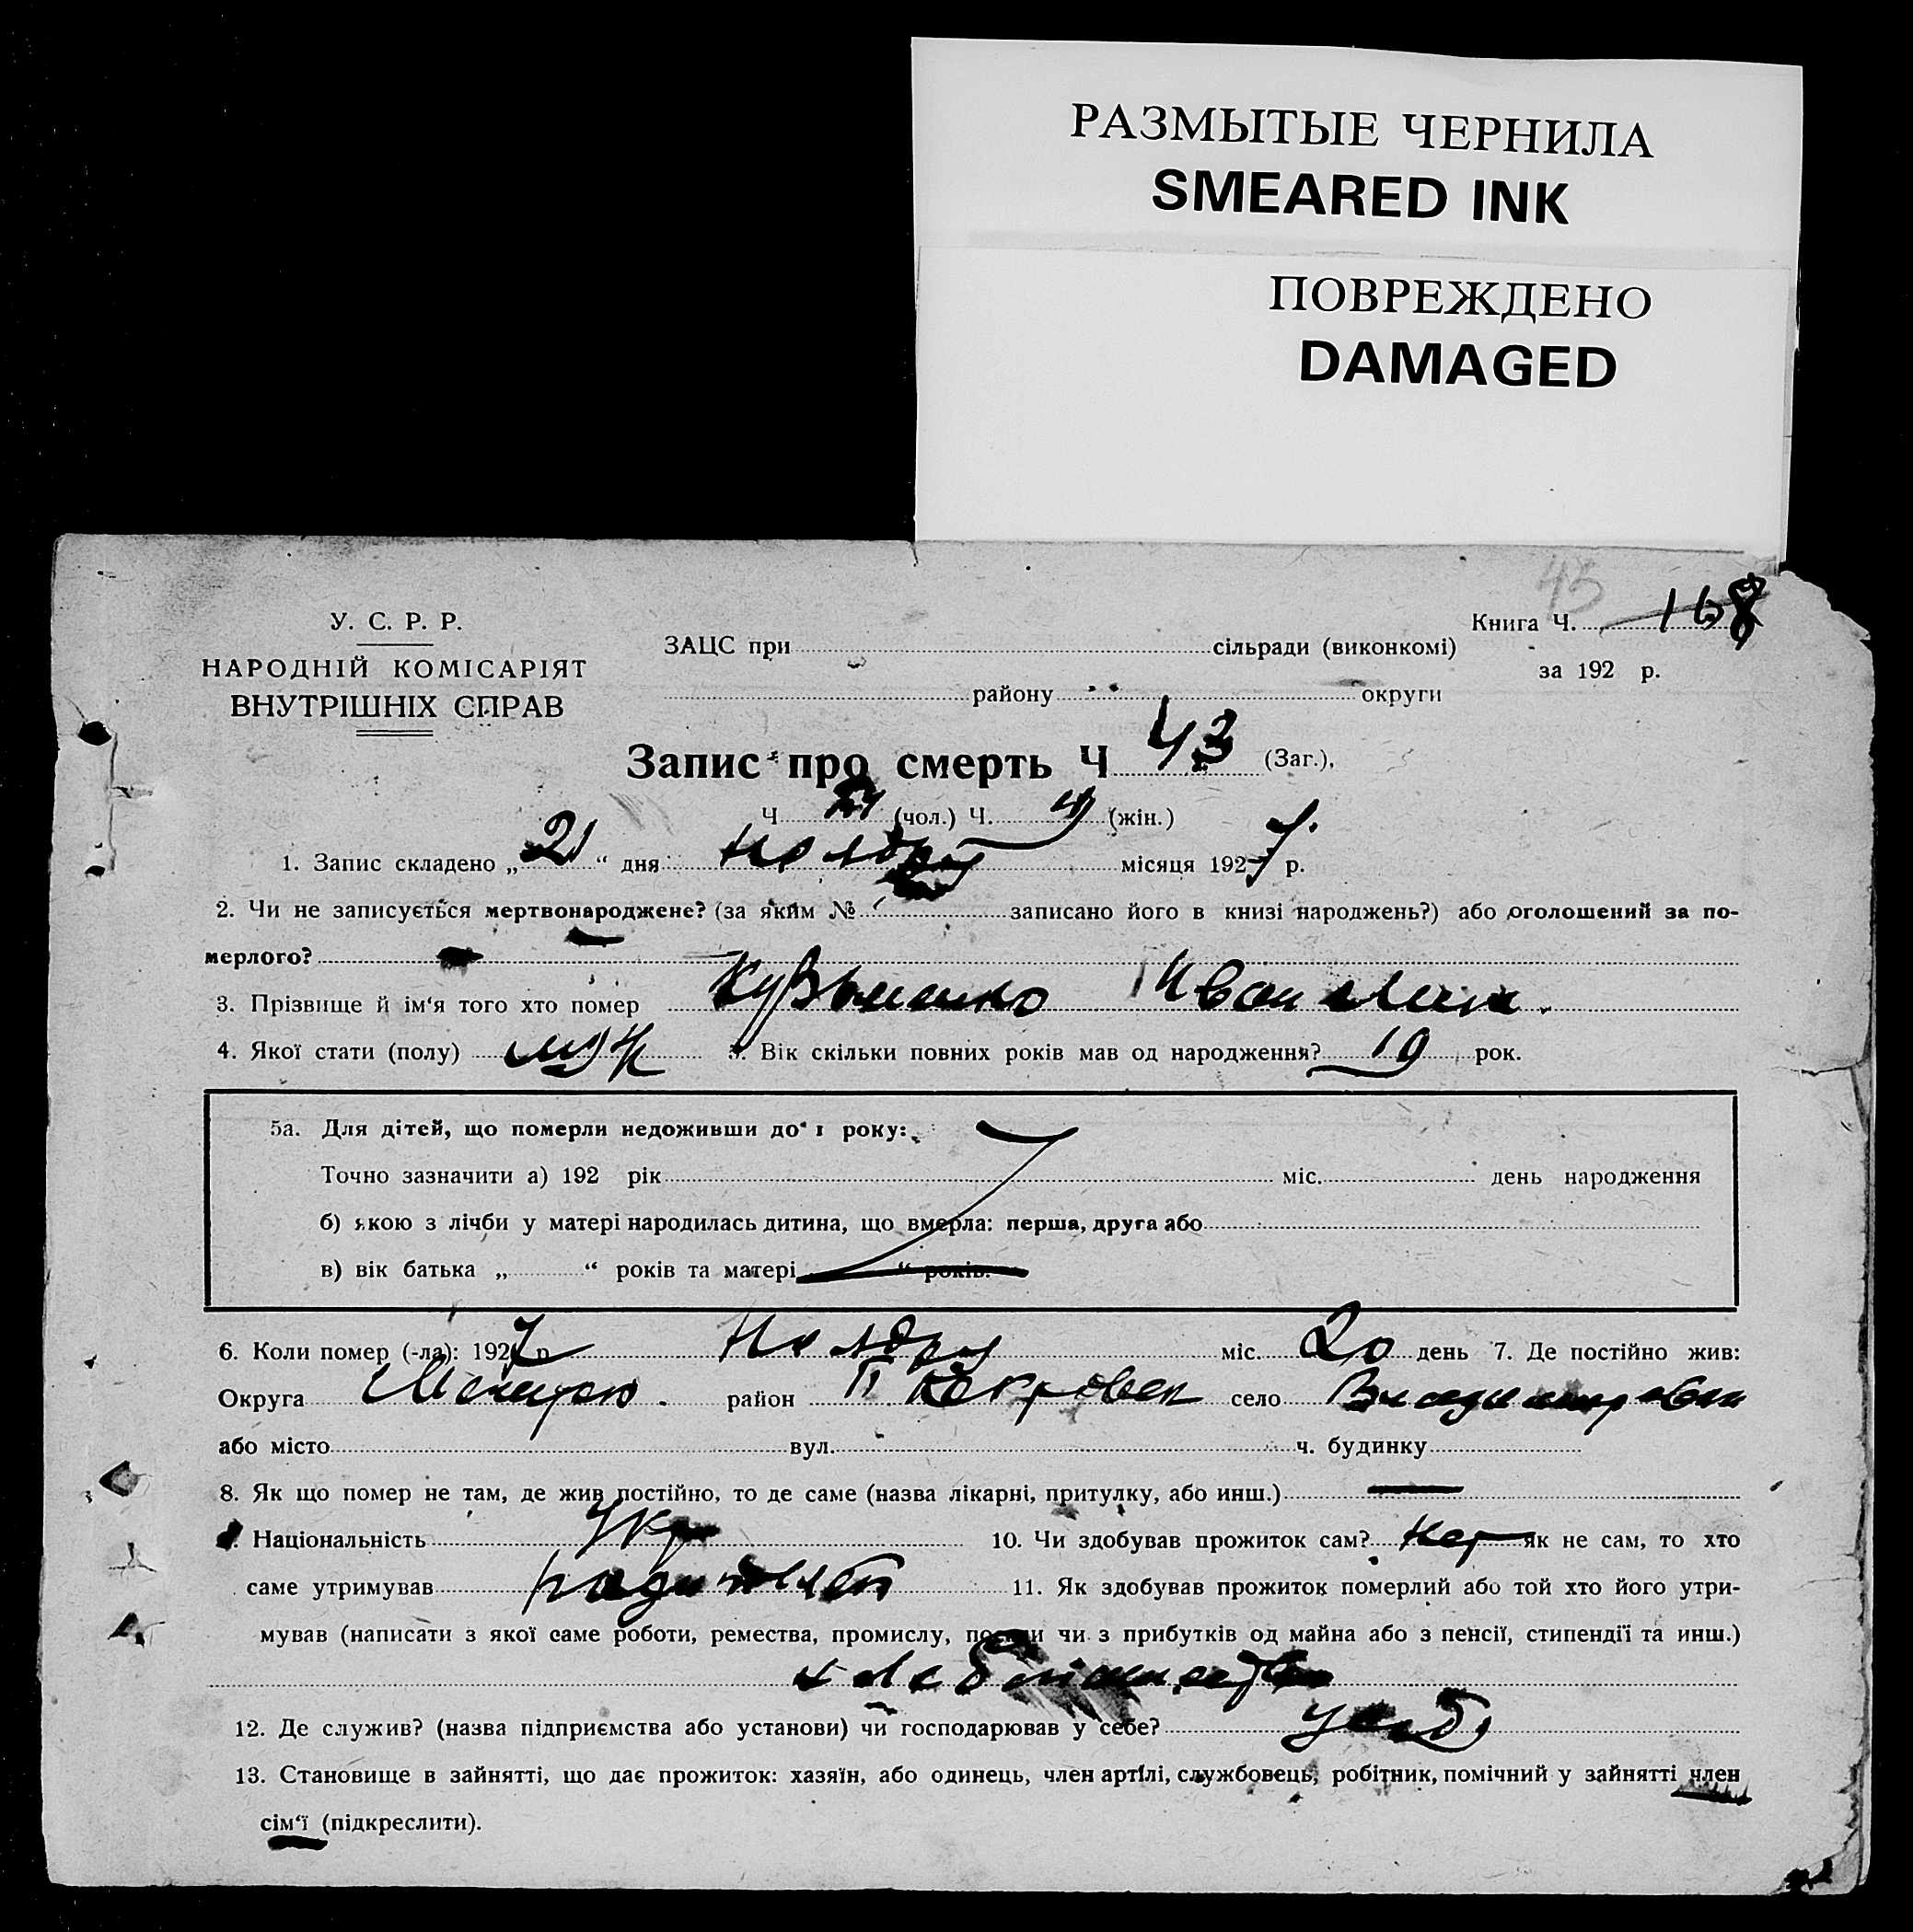 РАЗМЫТЫЕ ЧЕРНИЛА
SMEARED INK
ПОВРЕЖДЕНО
DAMAGED
43
У. С. Р. Р.
НАРОДНІЙ КОМІСАРІЯТ
ВНУТРІШНІХ СПРАВ
Книга Ч. 168
за 192 р.
ЗАЦС при сільради (виконкомі)
району округи
Запис про смерть Ч 43 (Заг.),
Ч (чол.) Ч. (жін.)
1. Запис складено „21“ дня ноября місяця 1927 р.
2. Чи не записується мертвонароджене? (за яким № записано його в книзі народжень?) або оголошений за по-
мерлого?
3. Прізвище й ім‘я того хто помер Кузьменко Иван
4. Якої стати (полу) муж Вік скільки повних років мав од народження? 19 рок.
5а. Для дітей, що померли недоживши до 1 року:
Точно зазначити а) 192 рік міс. день народження
б) якою з лічби у матері народилась дитина, що вмерла: перша, друга або
в) вік батька „ “ років та матері “ років.
6. Коли помер (-ла): 1927 р. ноября міс. 20 день 7. Де постійно жив:
Округа район П Покровск село
або місто вул. ч. будинку
8. Як що помер не там, де жив постійно, то де саме (назва лікарні, притулку, або инш.) —
9. Національність Укр 10. Чи здобував прожиток сам? Нет як не сам, то хто
саме утримував 11. Як здобував прожиток померлий або той хто його утри-
мував (написати з якої саме роботи, ремества, промислу, посади чи з прибутків од майна або з пенсії, стипендії та инш.)
хлебопашество
12. Де служив? (назва підприємства або установи) чи господарював у себе?
13. Становище в зайнятті, що дає прожиток: хазяїн, або одинець, член артілі, службовець, робітник, помічний у зайнятті член
сім‘ї (підкреслити).